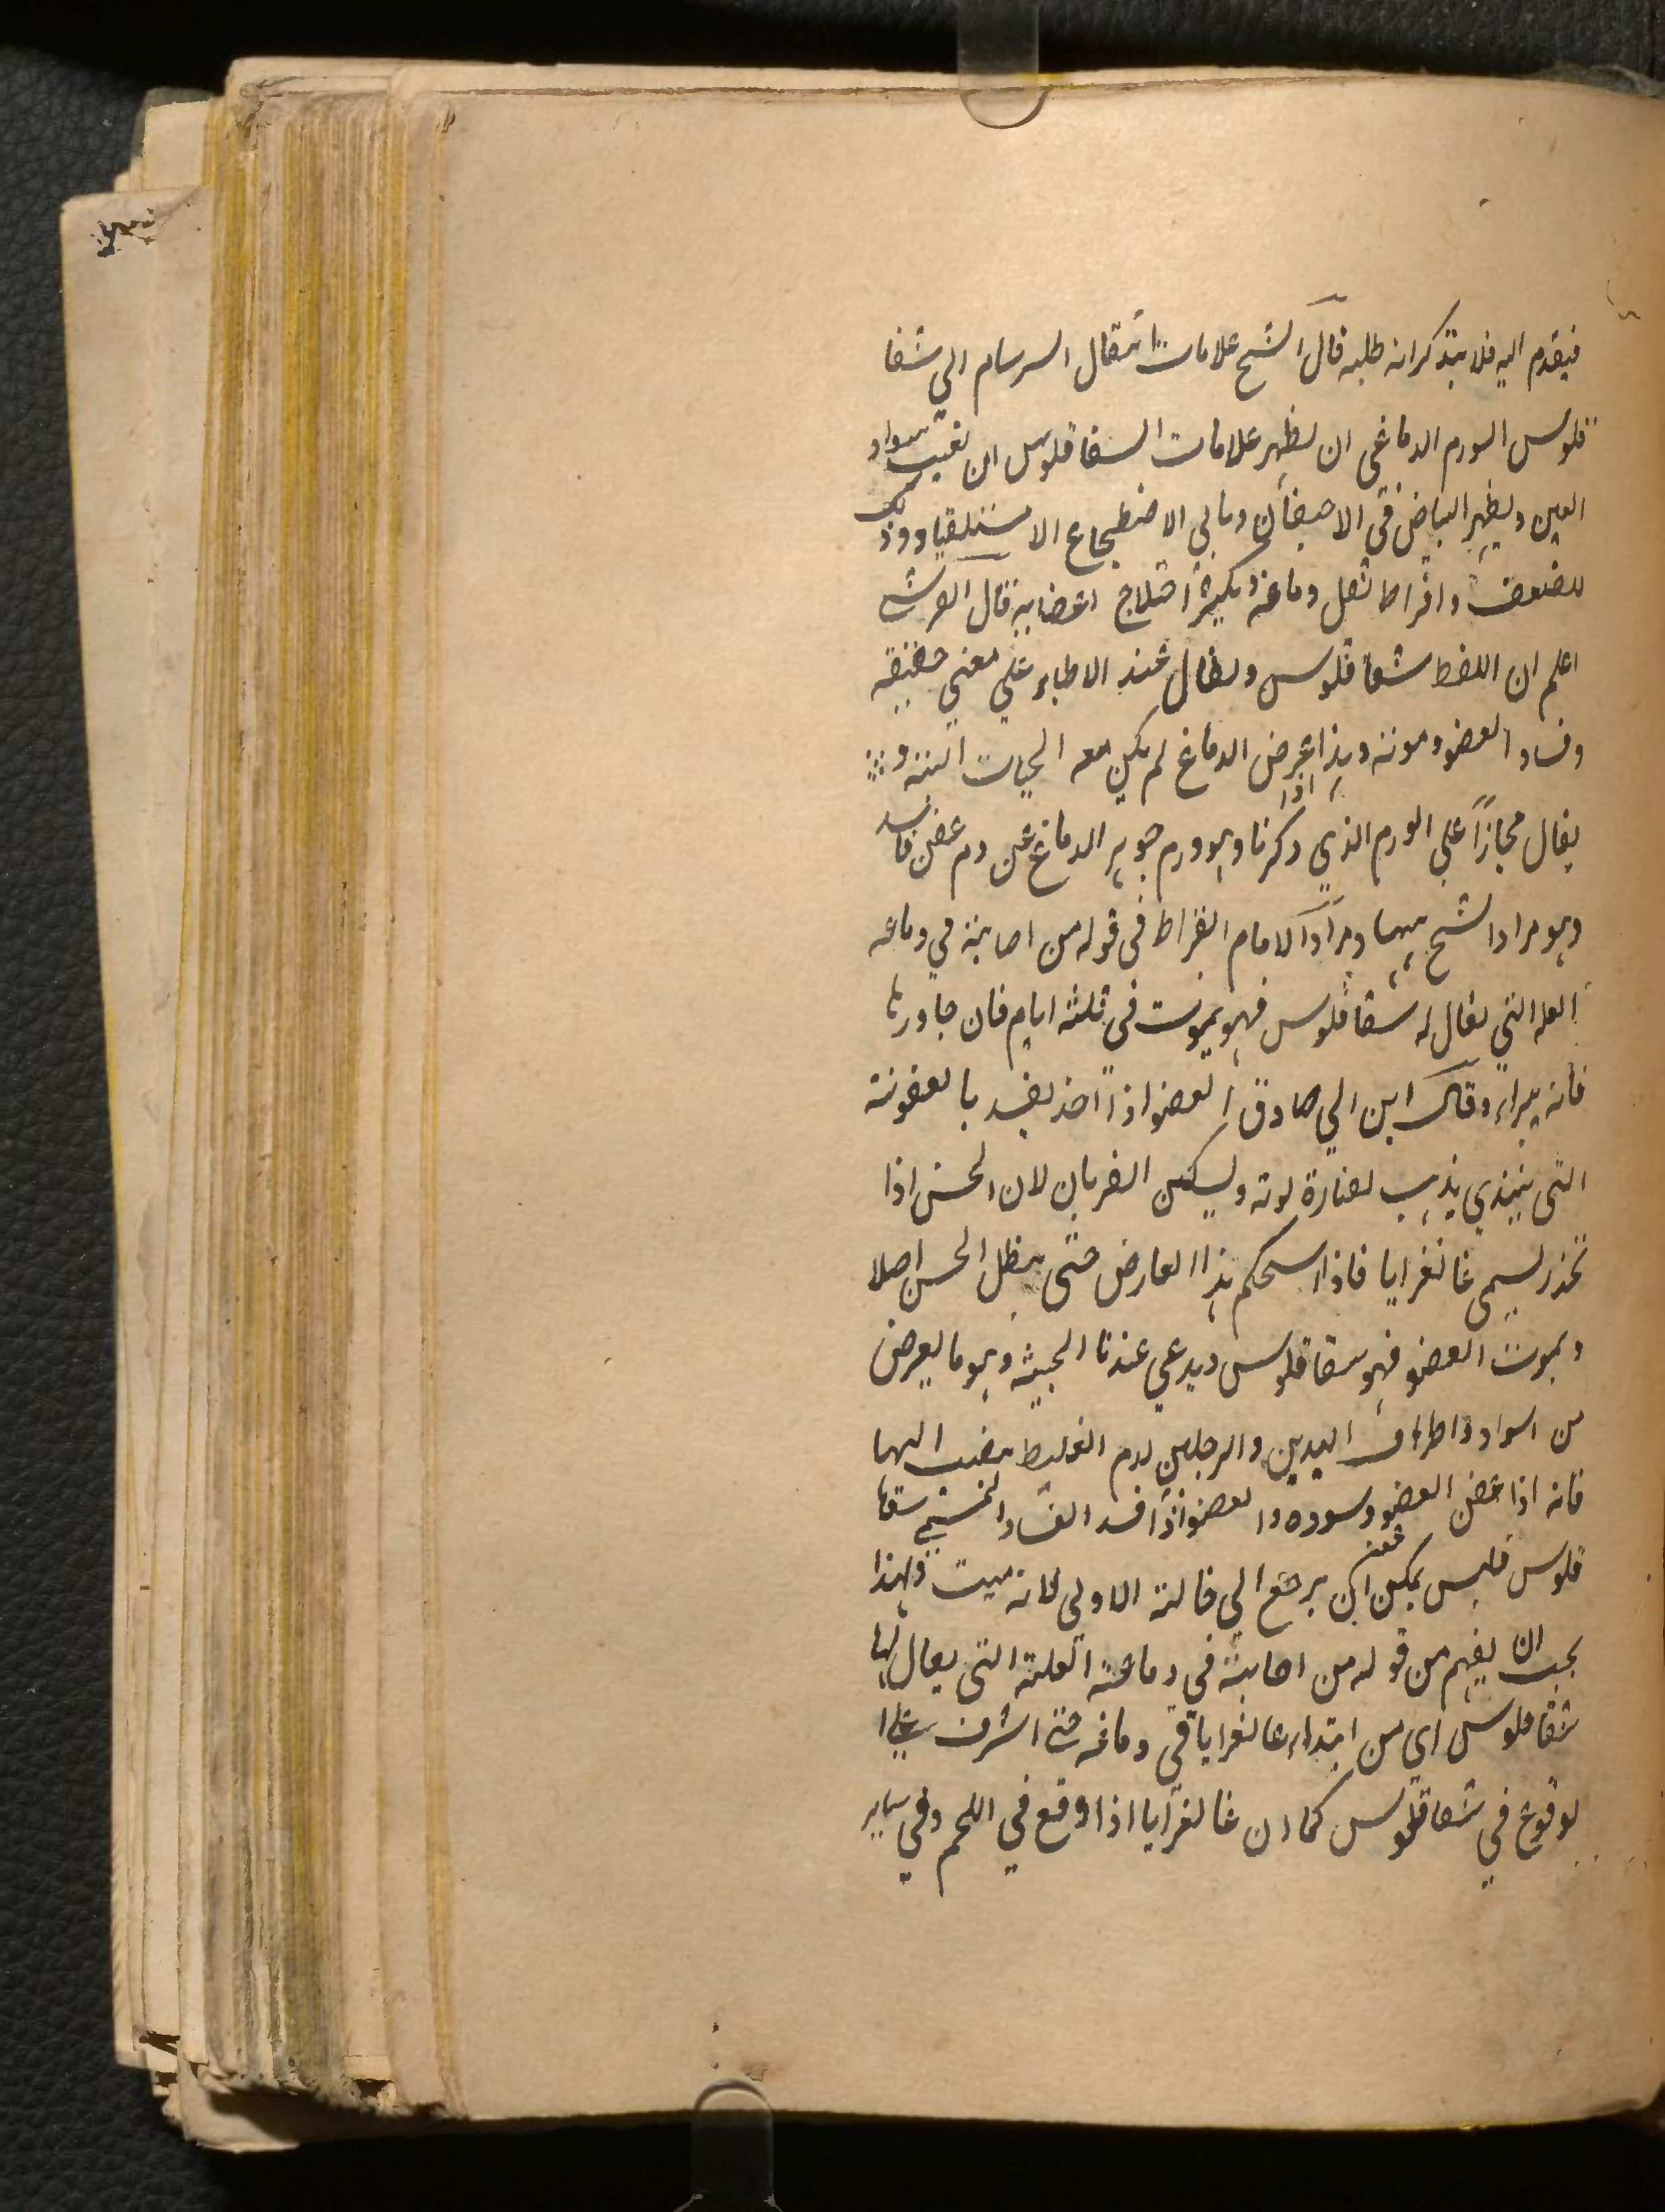 فيقدم اليه فلا يتذكر انه طلبه قال الشيخ علامات انتقال السرسام الي شقا
قلوس الورم الدماغي ان يظهر علامات السقاقلوس ان تغيب سواد
العين ويظهر البياض في الاحيفان ويابي الاضطجاع الا مستلقيا وذلك
للضعف وافراط ثقل دماغه ويكثر اختلاج اعضايه قال القرشي
اعلم ان اللفظ شقاقلوس ويقال عند الاطباء علي معني حقيقه
وفساد العضو وموته وهذا اذا عرض الدماغ لم يكن معه الحيات البتة و
يقال مجازاً علي الورم الذي ذكرنا وهو ورم جوهر الدماغ عن دم عفن فاسد
وهو مراد الشيخ ههنا ومراد الامام ابقراط في قوله من اصابته في دماغه
العله التي يقال له سقاقلوس فهو يموت في ثلثه ايام فان جاورها
فانه يبراء وقال ابن ابي صادق العضو اذا اخذ يفسد بالعفونة
التي يبتدي يذهب لضارة لونه ويسكن الضربان لان الحس اذا
تخدر يسمي غانغرايا فاذا استحكم هذا العارض حتي يبطل الحس اصلا
ويموت العضو فهو سقاقلوس ويدعي عندنا الخبيثه وهو ما يعرض
من اسواد واطراف اليدين والرجلين لدم الغليظ ينصب اليها
فانه اذا عفن العضو وسوده والعضو اذا فسد الفساد المستمي سقا
قلوس فليس يمكن ان يرجع الي حالته الاولي لانه ميت ولهذا
يجب ان يفهم من قوله من اصابته في دماغه العلة التي يقال لها
شقاقلوس اي من ابتداء غانغرايا في دماغه حتي اشرف علي ا
لوقوع في شقاقلوس كما ان غانغرايا اذا وقع في اللحم وفي ساير